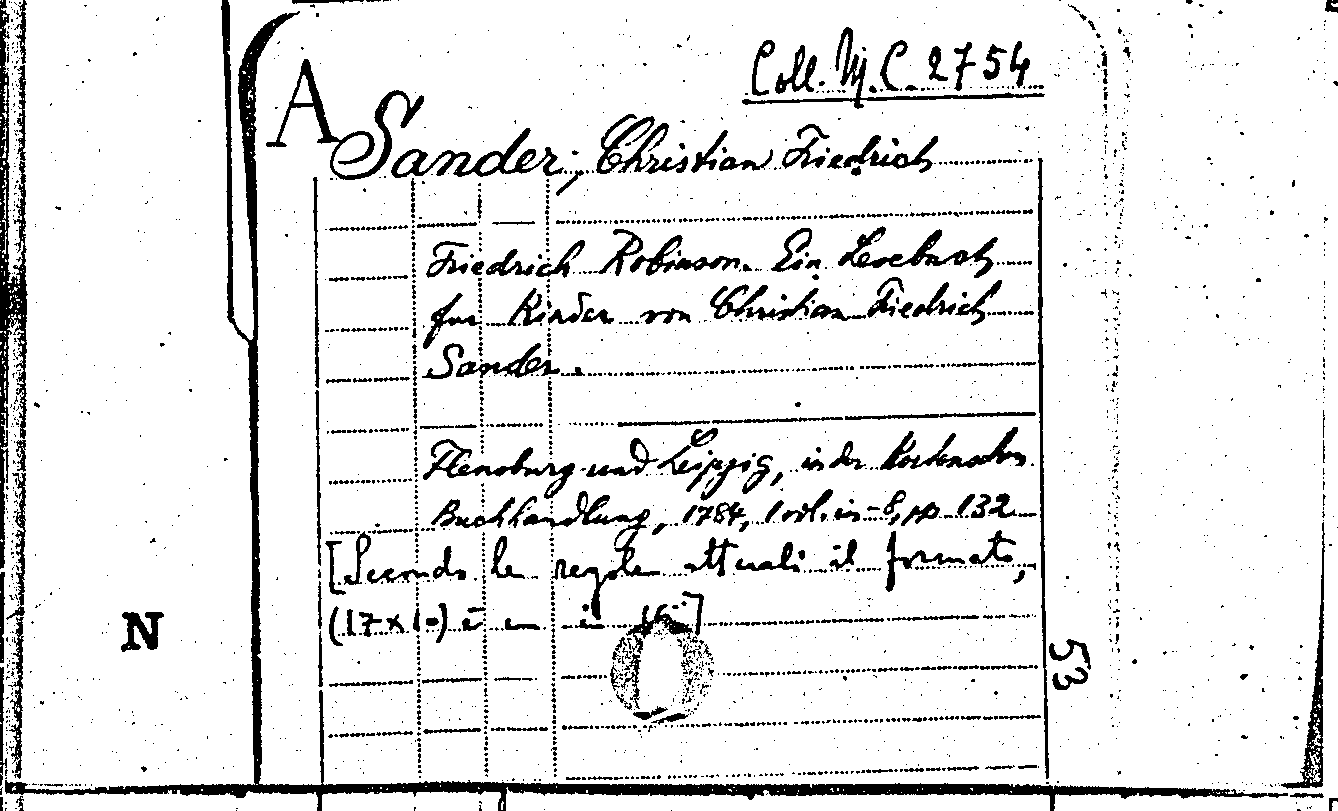 Coll. M.C. 2754
A
Sander, Christian Friedrich
Friedrich Robinson. Ein Lesebuch
fur Kinder von Christian Friedrich
Sander.
Flensburg und Leipzig, in der Kortenschen
Buchhandlung, 1784, 1 vol. in-8, pp 132
[Secondo le regole attuali il formato,
(17x10) è un in 16°]
N
53